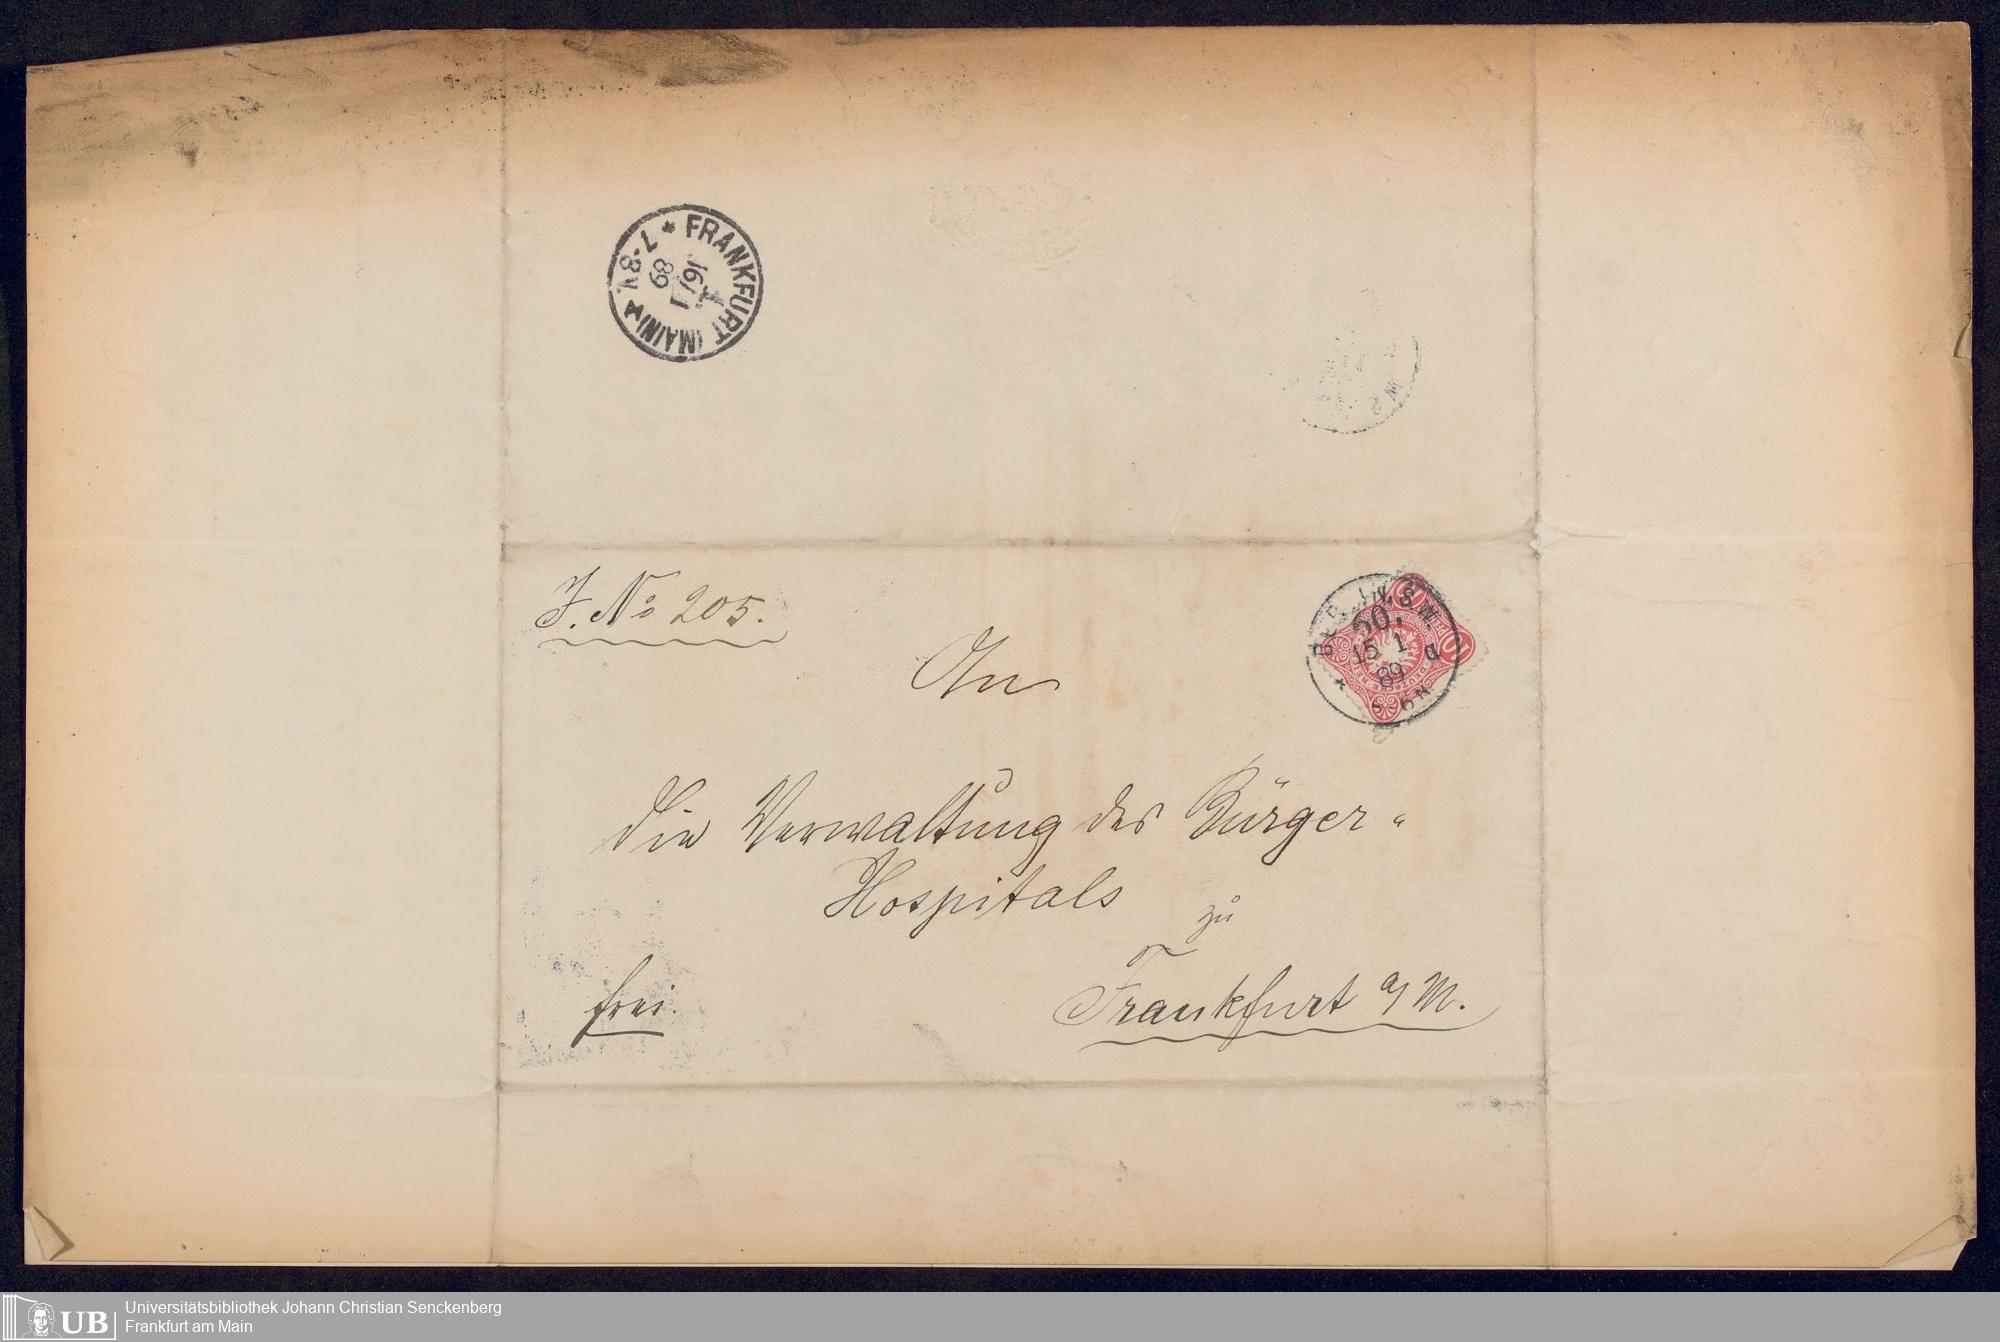 * FRANKFURT (MAIN) *
16/1
89
7-8 N.
J. № 205.
BERLIN, S.W.
50.
15 1
89
5-6 N
An
die Verwaltung des Bürger-
Hospitals
zu
Frankfurt a/M.
frei.
UB
Universitätsbibliothek Johann Christian Senckenberg
Frankfurt am Main